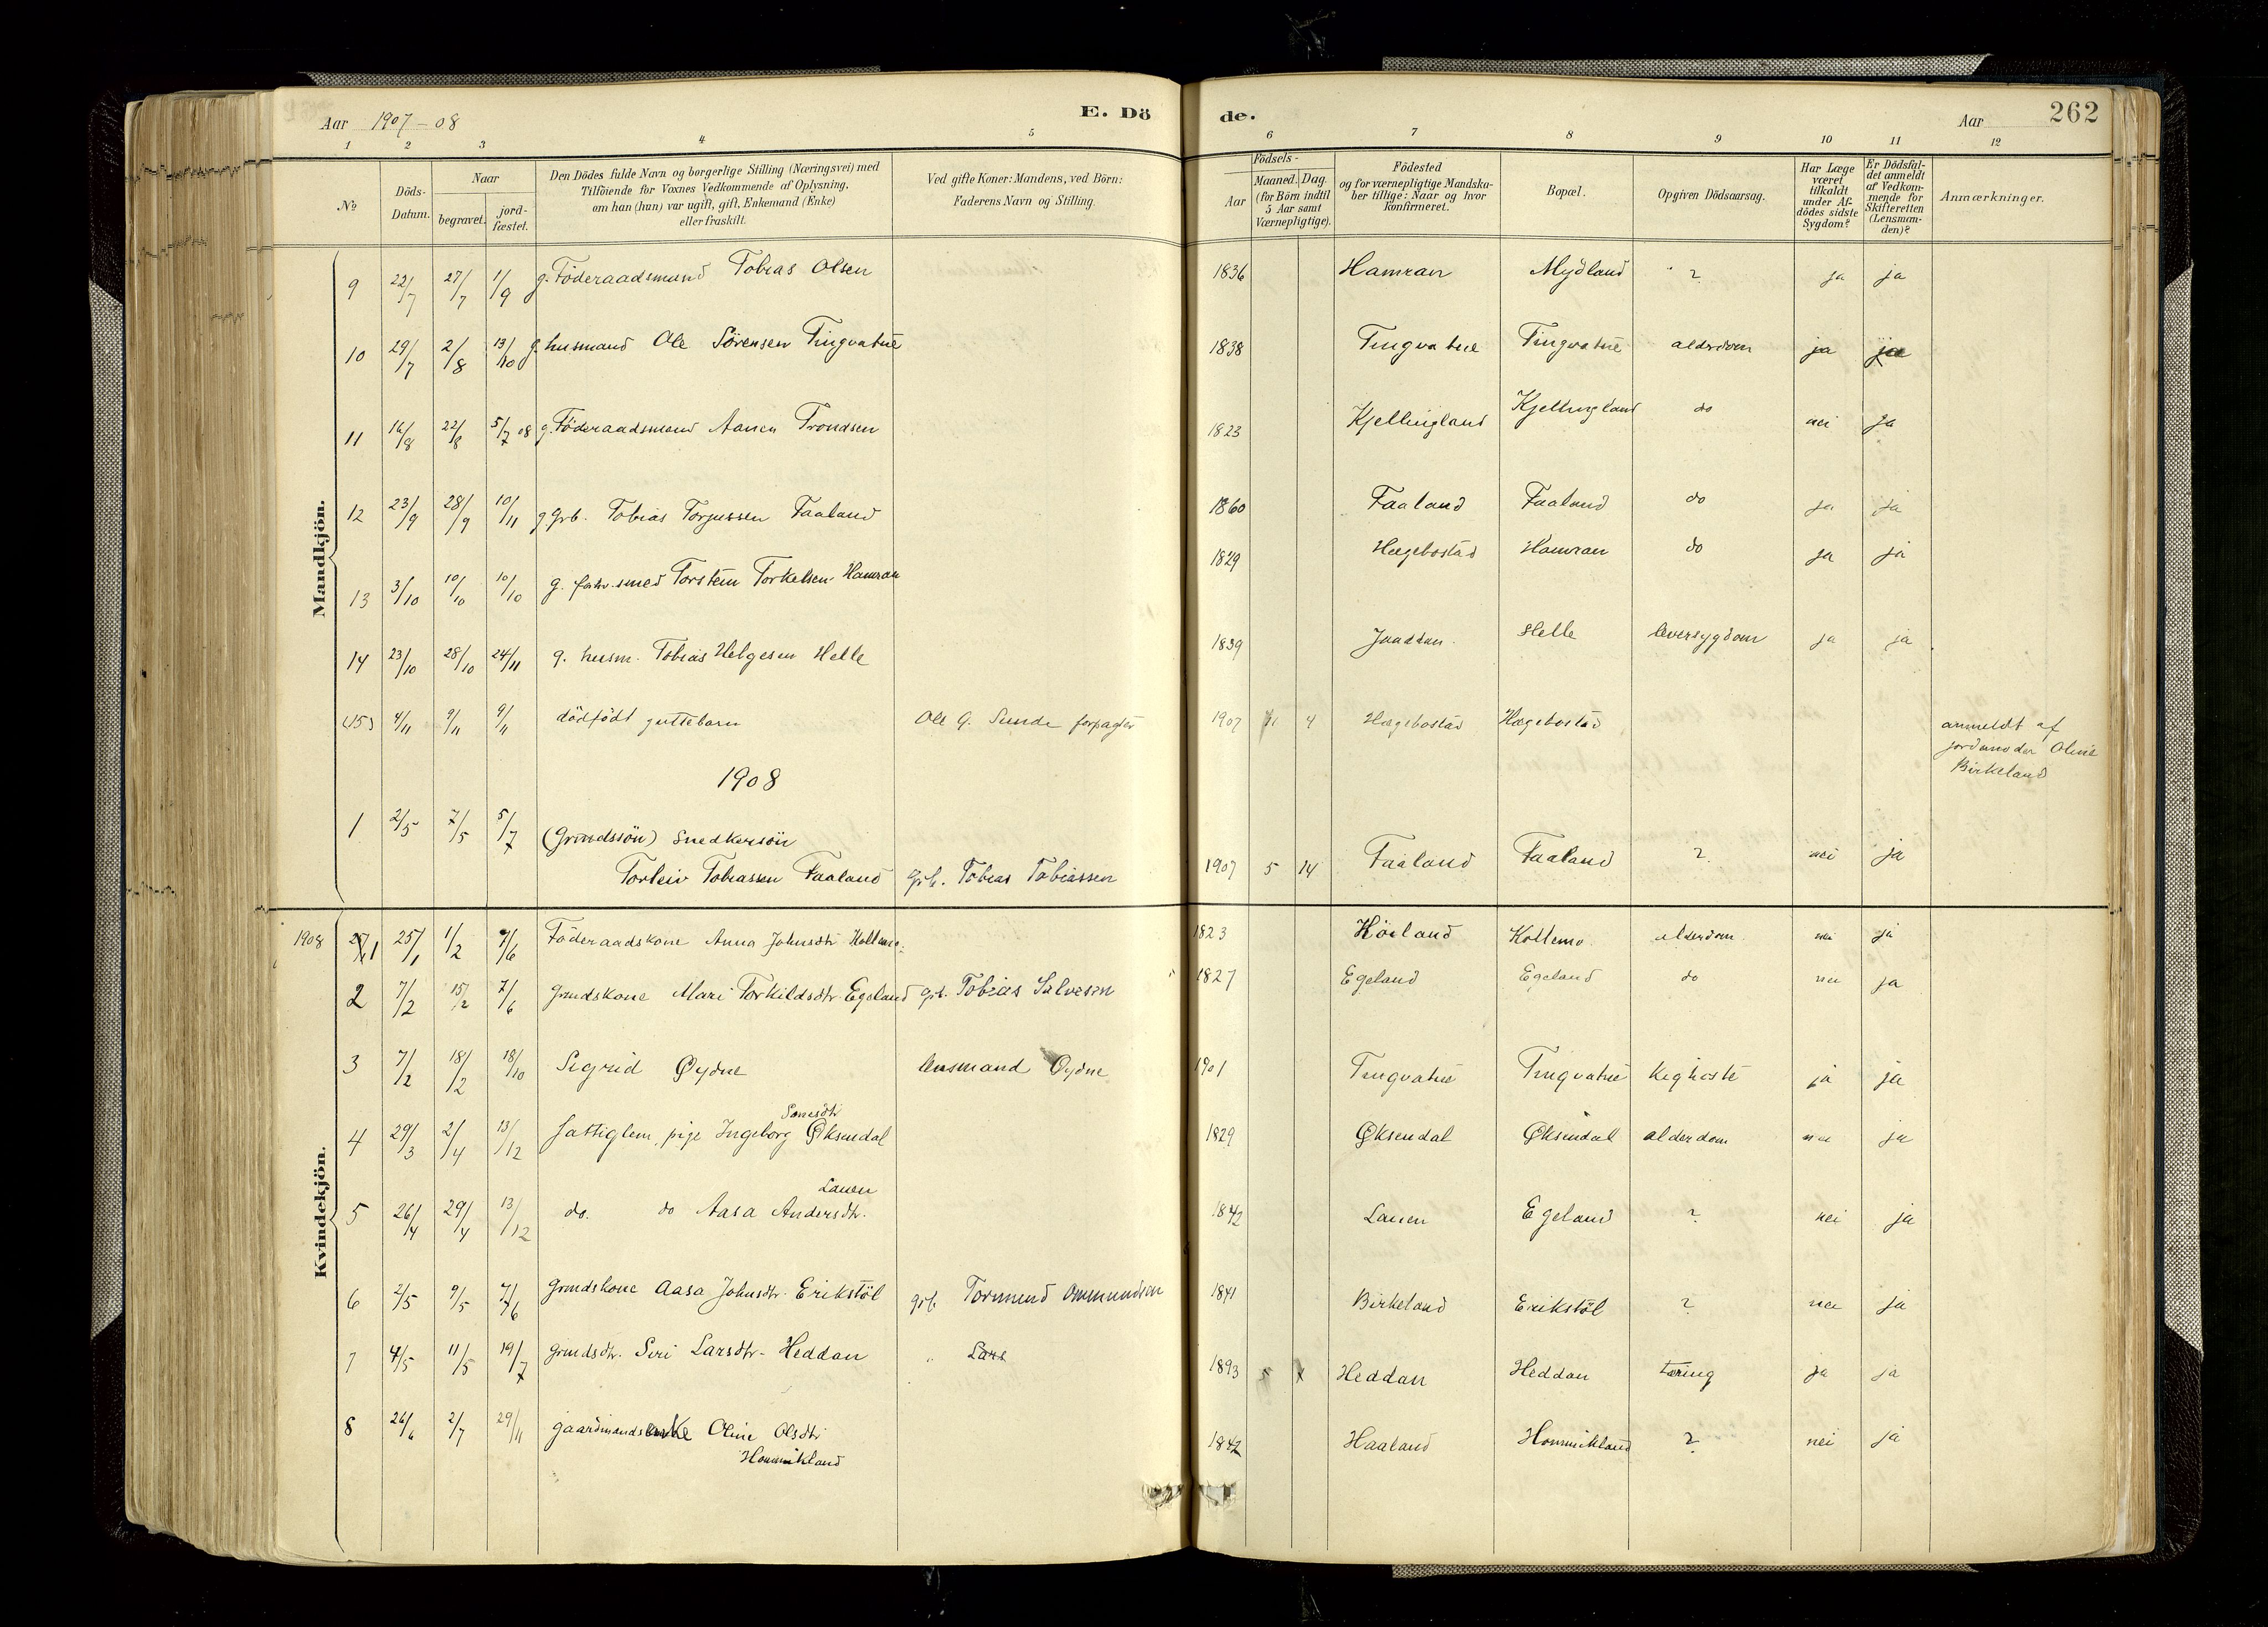 Aar 1907-08
E. Dö
de.
Aar
262
1 2 3 4 5 6 7 8 9 10 11 12
№
Döds-
Datum.
Naar
begravet.
jord-
fæstet.
Den Dödes fulde Navn og borgerlige Stilling (Næringsvei) med
Tilföiende for Voxnes Vedkommende af Oplysning,
om han (hun) var ugift, gift, Enkemand (Enke)
eller fraskilt.
Ved gifte Koner: Mandens, ved Börn:
Faderens Navn og Stilling.
Födsels-
Aar
Maaned. Dag
(for Börn indtil
5 Aar samt
Værnepligtige).
Födested
og for værnepligtige Mandska-
ber tillige: Naar og hvor
konfirmeret.
Bopæl.
Opgiven Dödsaarsag.
Har Læge
været
tilkaldt
under Af-
dödes sidste
Sygdom?
Er Dödsfal-
det anmeldt
af Vedkom-
mende for
Skifteretten
(Lensman-
den)?
Anmærkninger.
Mandkjön.
9 22/7 27/7 1/9 g. Föderaadsmand Tobias Olsen 1836 Hamran Mydland ? ja ja
10 29/7 2/8 13/10 g. husmand Ole Sörensen Tingvatne 1838 Tingvatne Tingvatne alderdom ja ja
11 16/8 22/8 5/7 08 g. Föderaadsmand Aanen Trondsen 1823 Kjellingland Kjellingland do nei ja
12 23/9 28/9 10/11 g grb. Tobias Torjussen Faaland 1860 Faaland Faaland do ja ja
13 3/10 10/10 10/10 g. smed Torstein Torkelsen Hamran 1829 Hægebostad Hamran do ja ja
14 23/10 28/10 24/11 g. husm. Tobias Helgesen Helle 1839 Helle leversygdom ja ja
(15) 4/11 9/11 9/11 dödfödt guttebarn Ole G. Sunde forpagter 1907 11 4 Hægebostad Hægebostad
anmeldt af
jordmoder Oline
Birkeland
1908
1 2/5 7/5 5/7 (Grmdssön) Snedkersön
Torleiv Tobiassen Faaland grb. Tobias Tobiassen 1907 5 14 Faaland Faaland ? nei ja
Kvindekjön.
1908 1 25/1 1/2 7/6 Föderaadskone Anna Johnsdtr Kollemo. 1823 Köiland Kollemo alderdom nei ja
2 7/2 15/2 7/6 Grmdskone Mari Torkildsdtr Egeland grb. Tobias Salvesen 1827 Egeland Egeland do nei ja
3 7/2 18/2 18/10 Sigrid Øydne lensmand Øydne 1901 Tingvatne Tingvatne kighoste ja ja
Sonesdtr
4 29/3 2/4 13/12 fattiglem, pige Ingeborg Øksendal 1829 Øksendal Øksendal alderdom nei ja
Lauen
5 26/4 29/4 13/12 do. do Aasa Andersdtr. 1842 Lauen Egeland ? nei ja
6 2/5 9/5 7/6 Grmdskone Aasa Johnsdtr. Erikstöl grb. Tormund Ommundsen 1841 Birkeland Erikstöl ? nei ja
7 4/5 11/5 19/7 grmdsdtr. Siri Larsdtr. Heddan " Lars 1893 5 Heddan Heddan tæring ja ja
8 26/6 2/7 29/11 gaardmandsenke Oline Olsdtr
Hommikland 1842 Haaland Hommikland ? nei ja